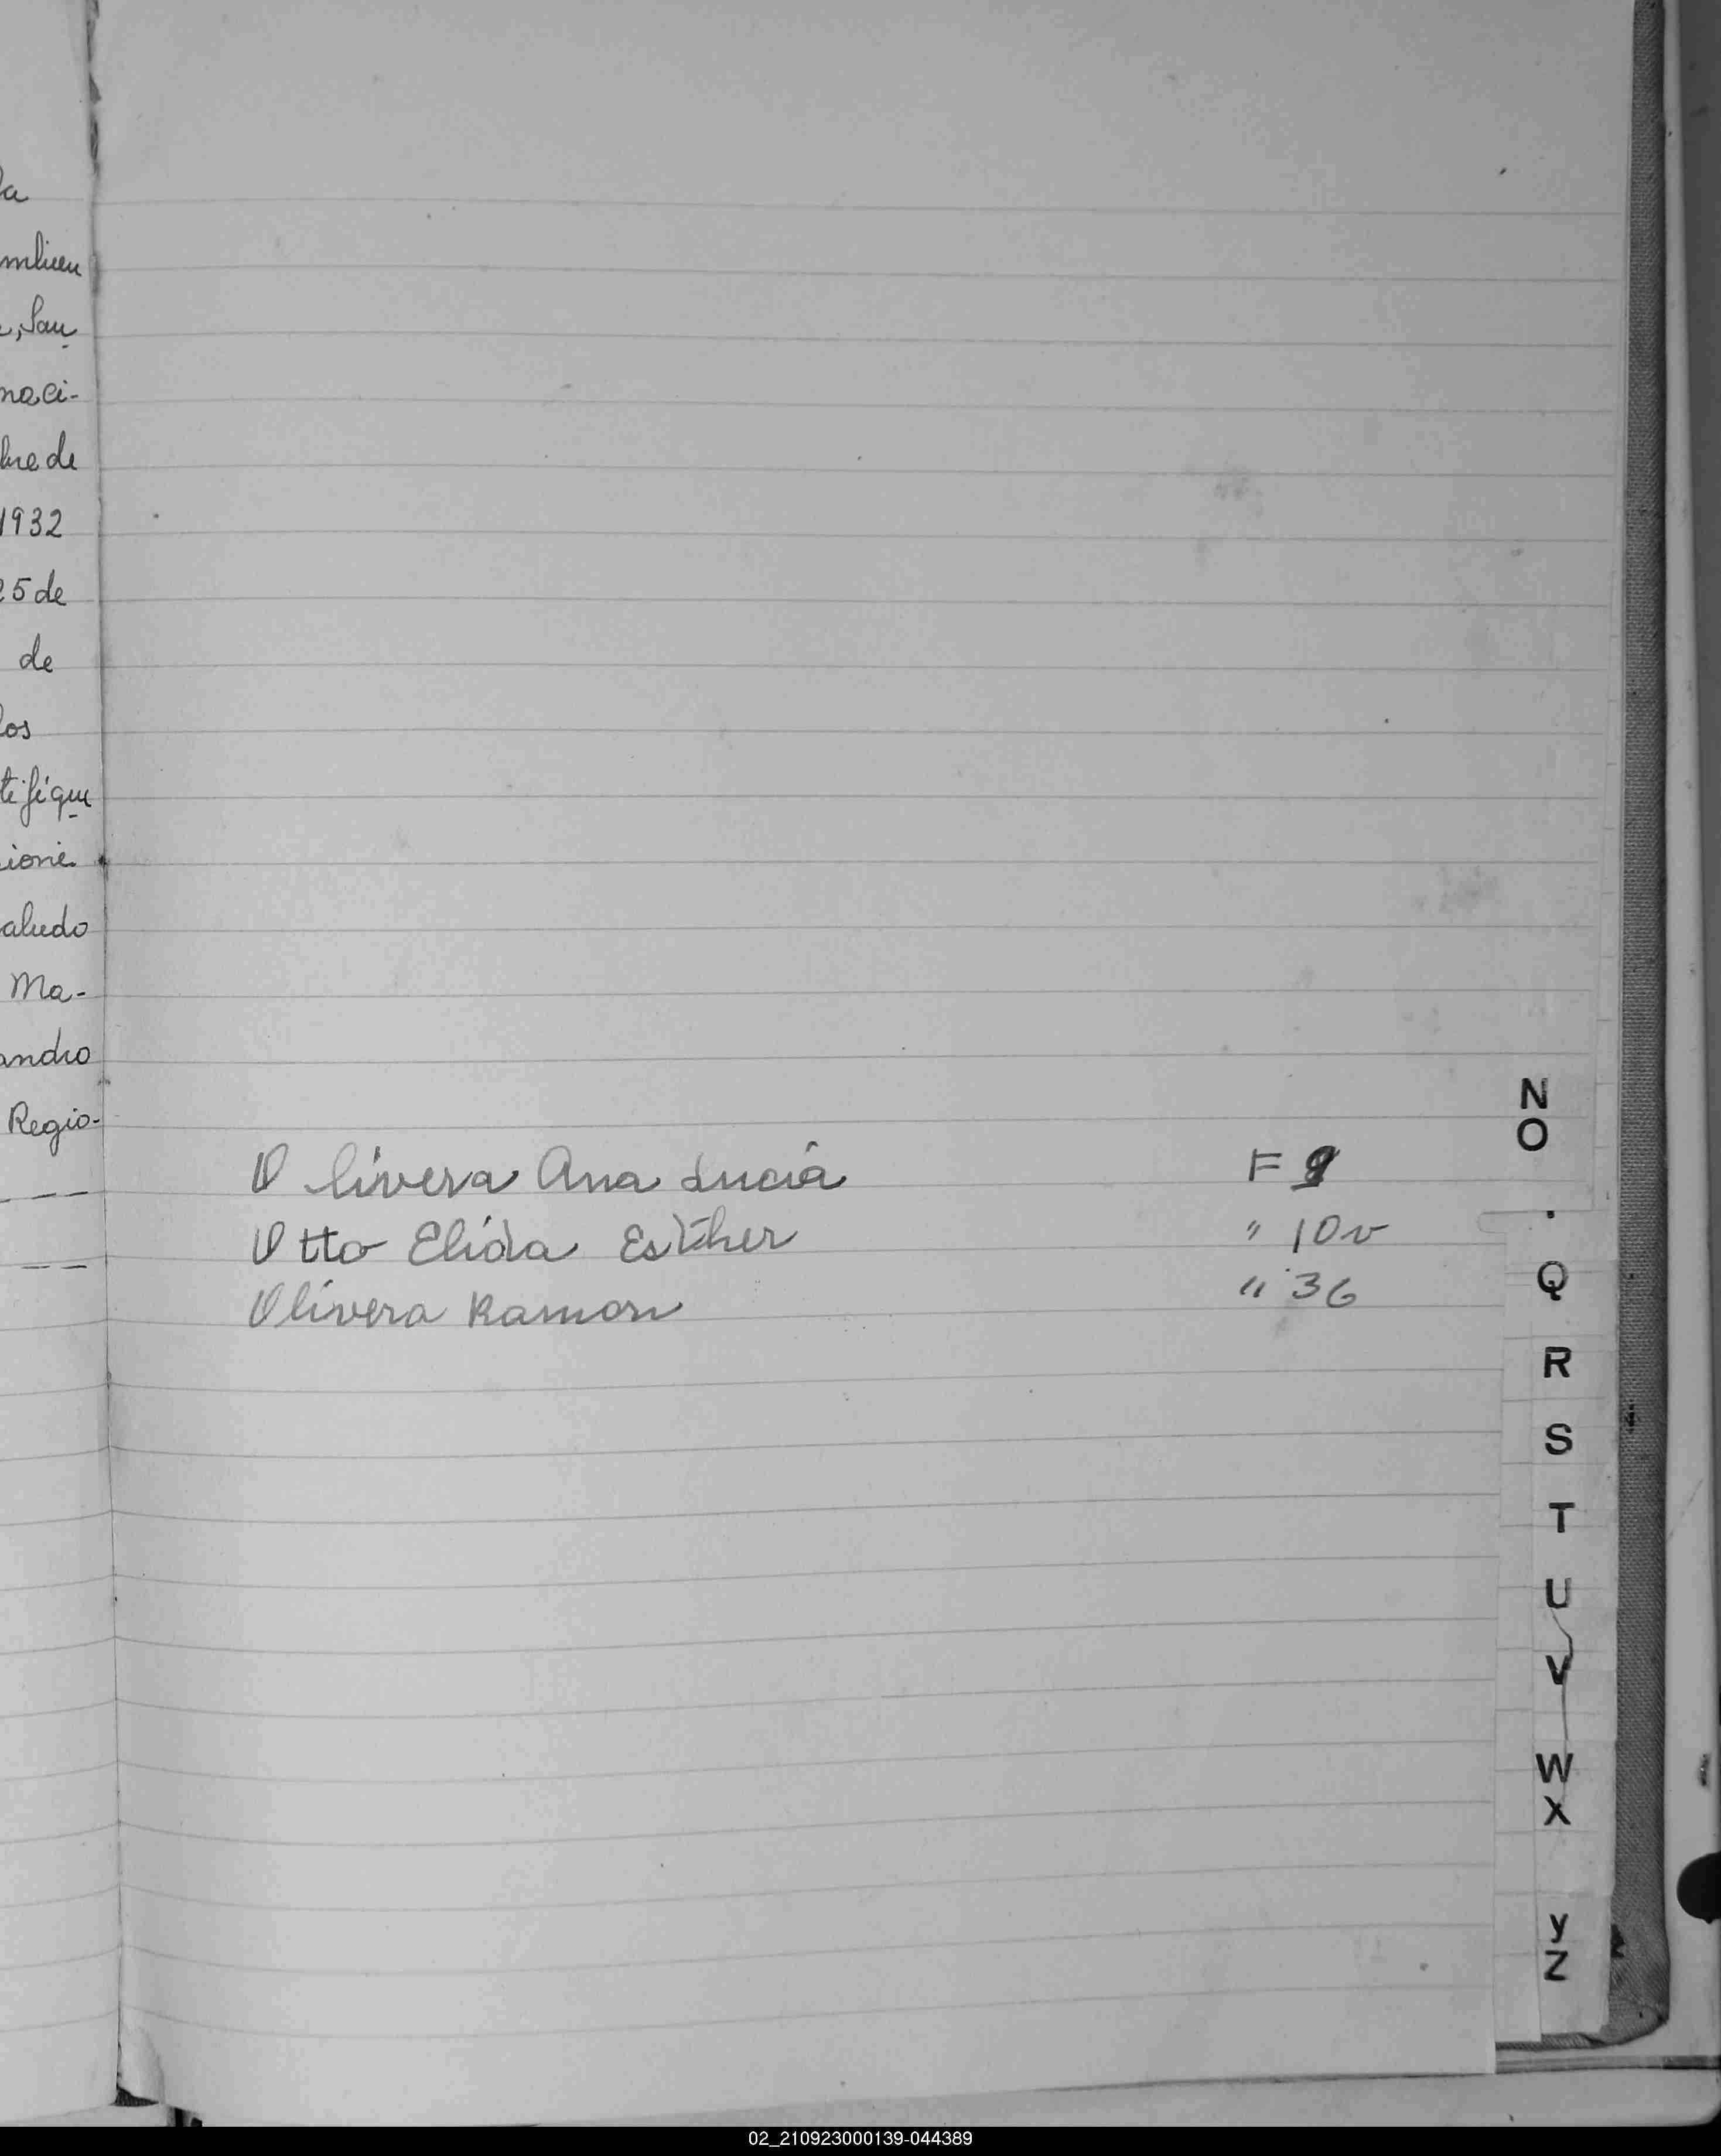 da
mbien
, San
naci-
bre de
1932
25 de
de
los
tifique
cione
aludo
Ma-
andro
Regio-
Olivera Ana Lucia F
Otto Elida Esther " 10v
Olivera Ramon " 36
N
O
Q
R
S
T
U
V
W
X
y
Z
02_210923000139-044389